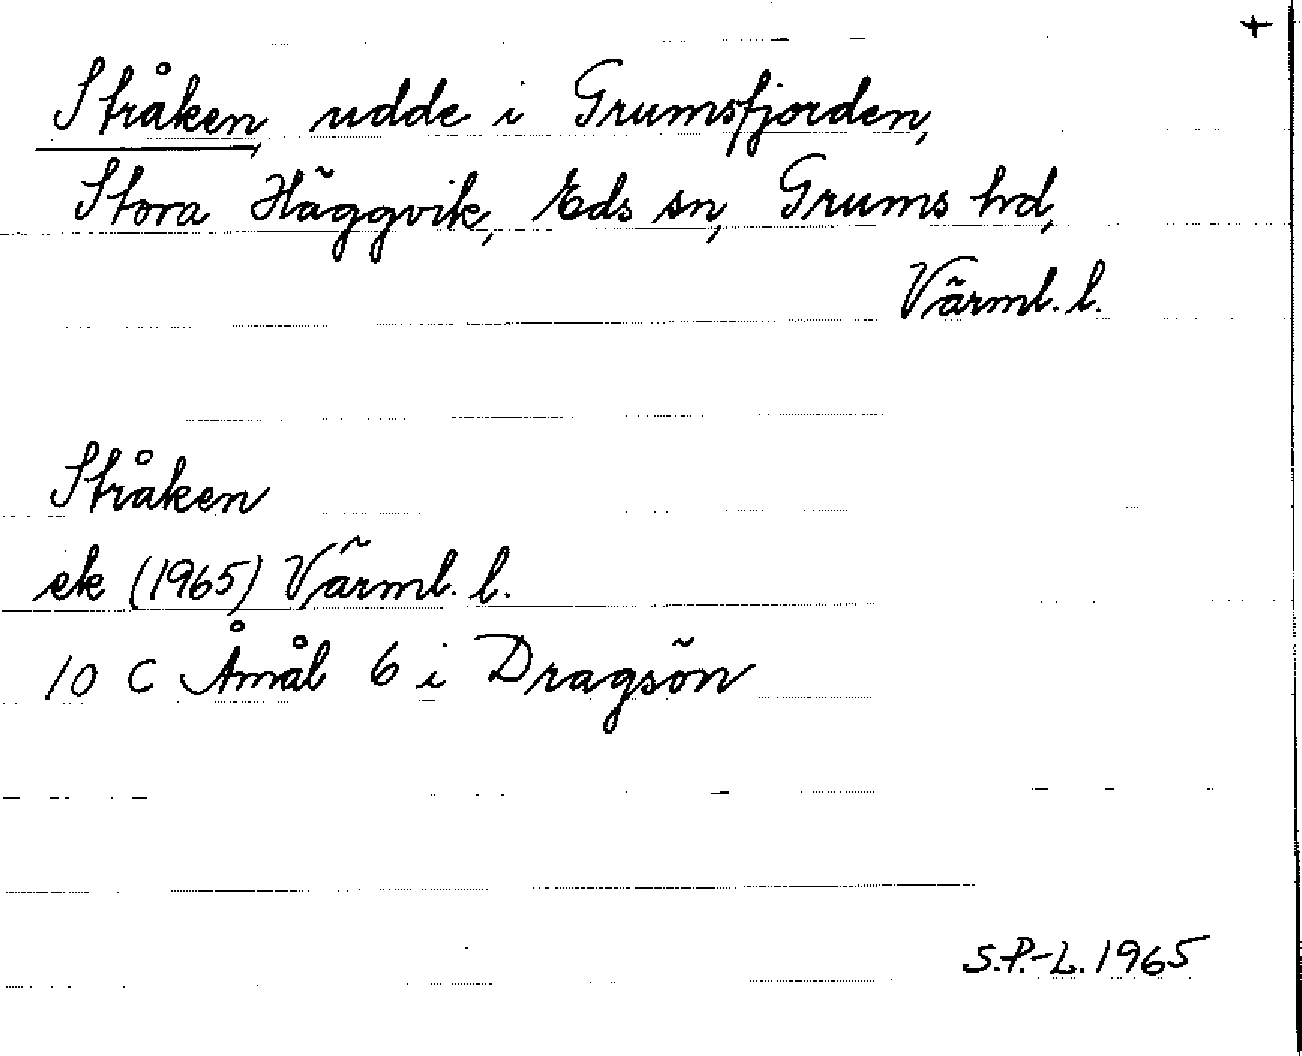 +
Stråken, udde i Grumsfjorden,
Stora Häggvik, Eds sn, Grums hd,
Värml. l.
Stråken
ek (1965) Värml. l.
10 C Åmål 6 i Dragsön
S.P.-L. 1965